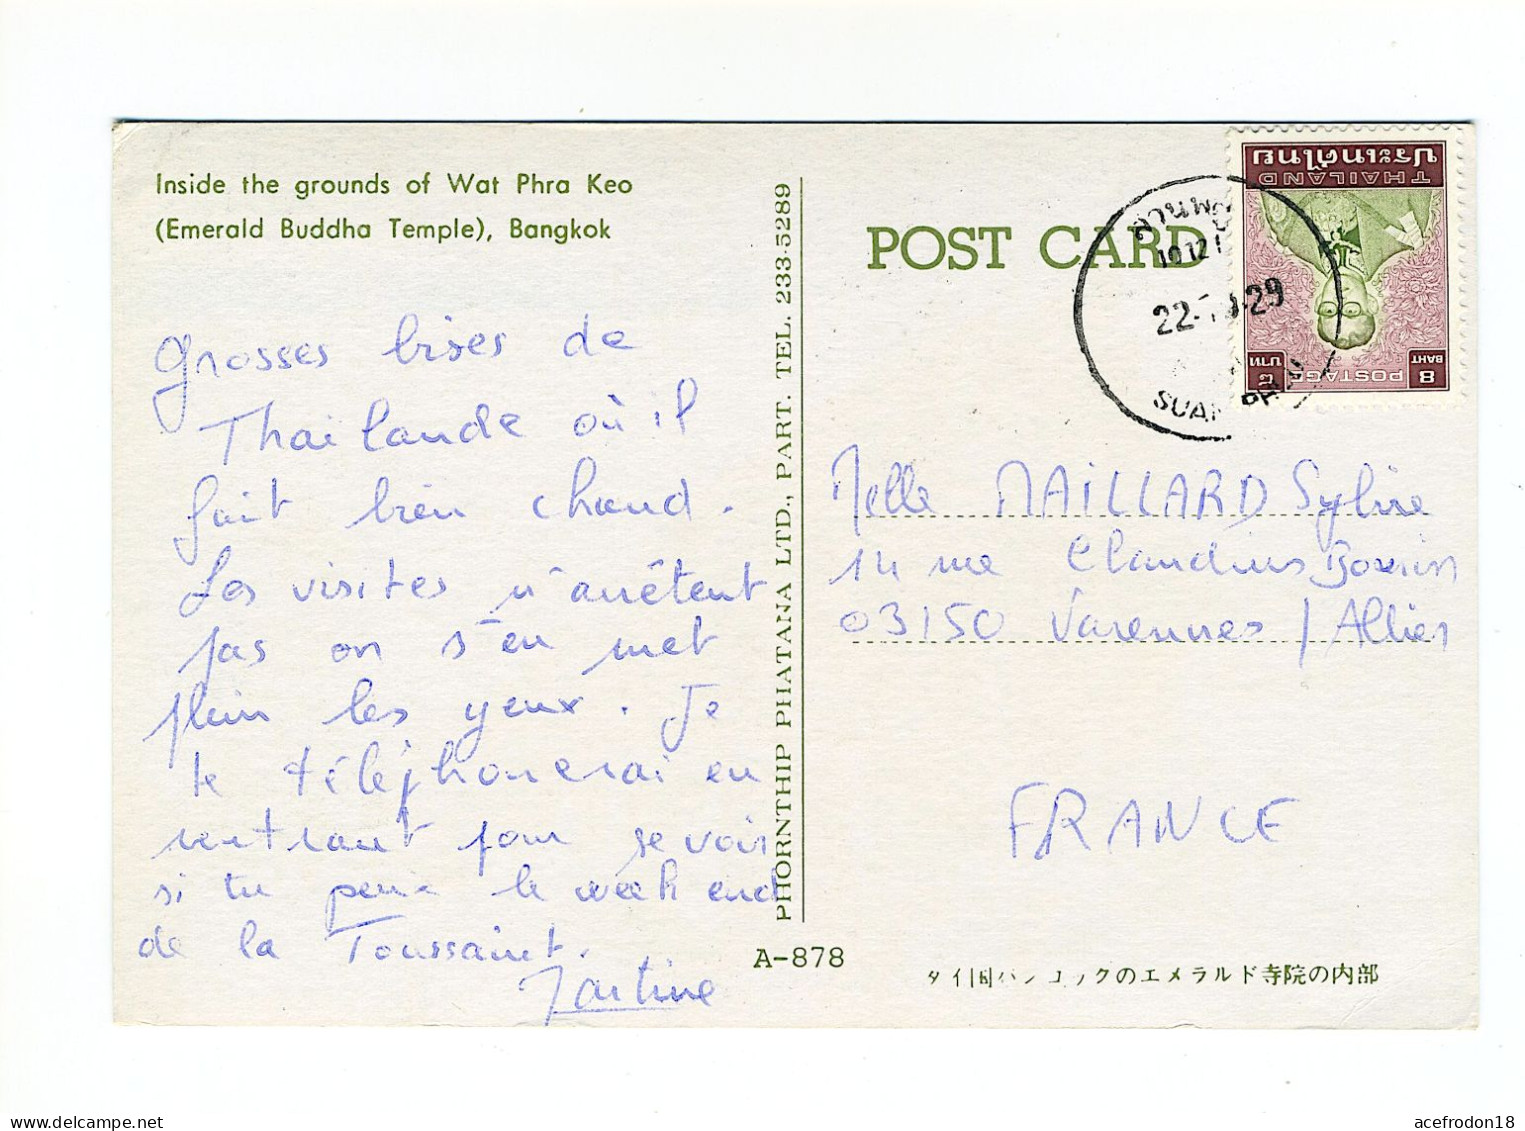 Inside the grounds of Wat Phra Keo
(Emerald Buddha Temple), Bangkok
Grosses bises de
Thailande où il
fait bien chaud.
Les visites n'arrêtent
pas on s'en met
plein les yeux. Je
te téléphonerai en
rentrant pour se voir
si tu peux le week end
de la Toussaint.
Martine
PHORNTHIP PHATANA LTD., PART. TEL. 233-5289
A-878
POST CARD
ประเทศไทย
THAILAND
8 POSTAGE ๘
BAHT บาท
10 12
22-
29
SUAN
Melle MAILLARD Sylvie
14 rue Claudius
03150 Varennes / Allier
FRANCE
タイ国バンコックのエメラルド寺院の内部
acefrodon18